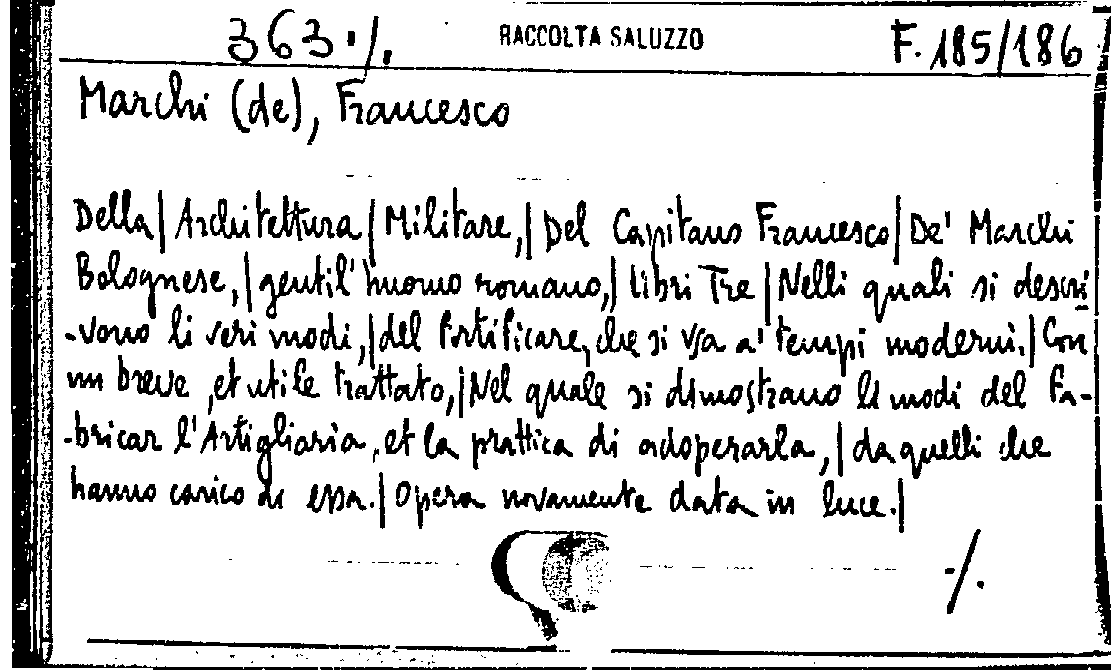 363 ·/. RACCOLTA SALUZZO F. 185/186
Marchi (de), Francesco
Della | Architettura | Militare, | Del Capitano Francesco | De' Marchi
Bolognese, | gentil' huomo romano, | libri Tre | Nelli quali si descri
-vono li veri modi, | del fortificare, che si vsa a' tempi moderni. | Con
un breve, et utile trattato, | Nel quale si dimostrano li modi del fa-
-bricar l'Artigliaria, et la prattica di adoperarla, | da quelli che
hanno carico di essa. | Opera novamente data in luce. |
·/.